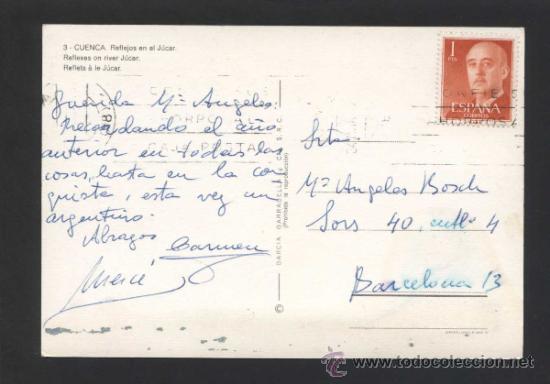 3 - CUENCA. Reflejos en el Júcar.
Reflexes on river Júcar.
Reflets à le Júcar.
Querida Mª Angeles:
Recordando el año
anterior en todas las
cosas, hasta en la con
quista, esta vez un
argentino.
Abrazos Carmen
Mercé
© GARCIA GARRABELLA Y CIA. S.R.C.
(Prohibida la reproducción)
1
PTA
ESPAÑA
CORREOS
Srta
Mª Angeles Bosch
Sors 40, entlo 4
Barcelona 13
todocoleccion
www.todocoleccion.net